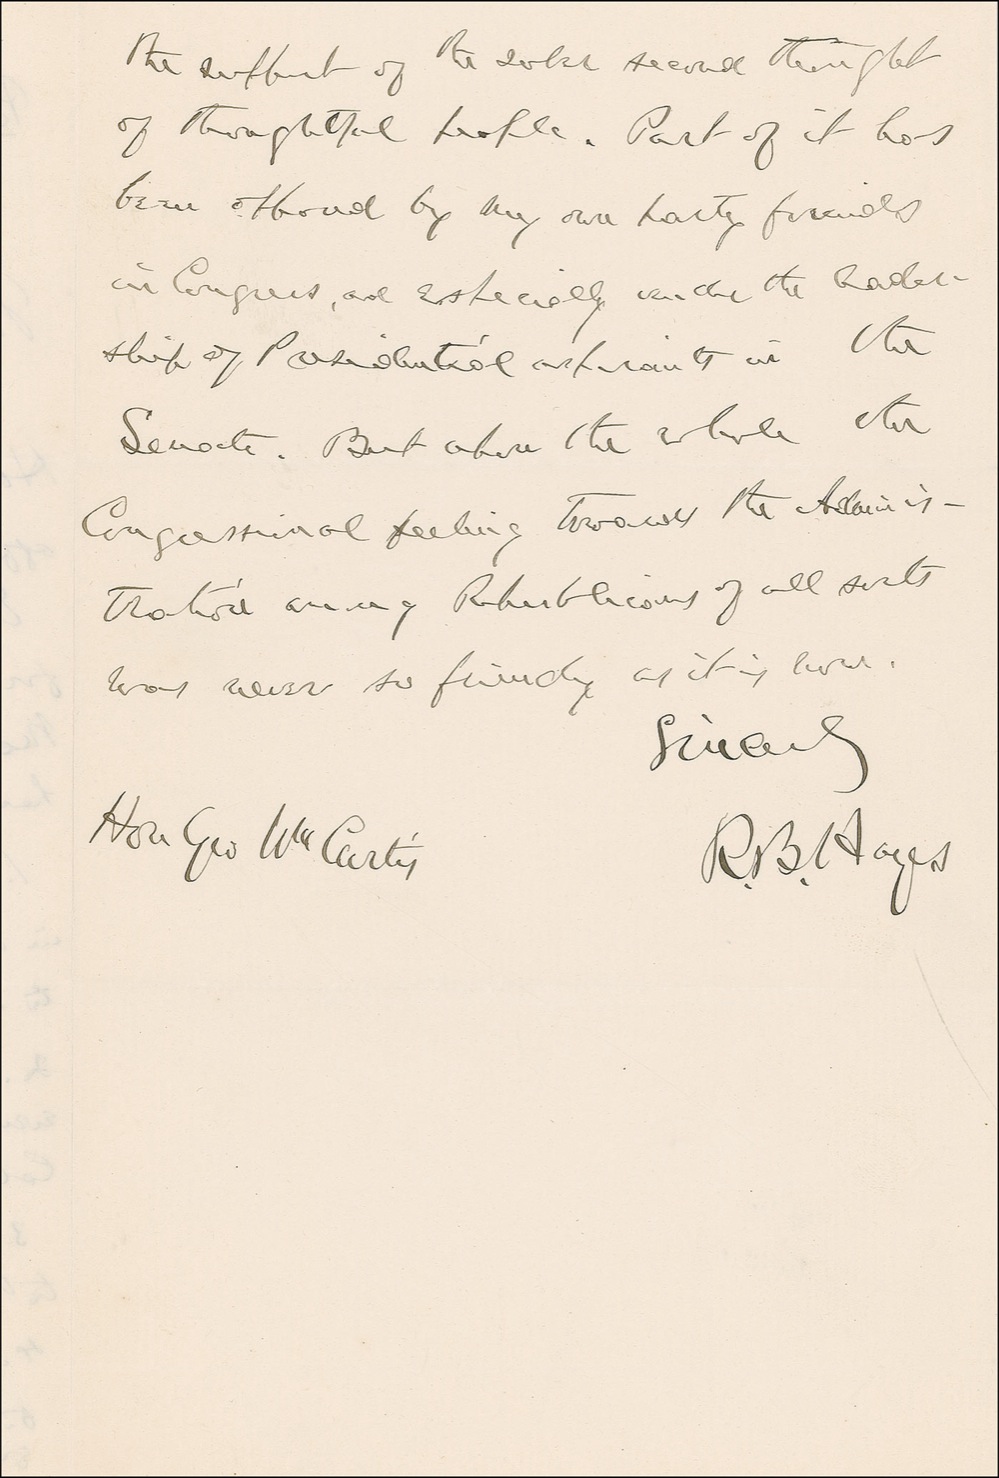 the support of the sober second thought
of thoughtful people. Part of it has
been opposed by my own party friends
in Congress, and especially under the leader-
ship of Presidential aspirants in the
Senate. But upon the whole the
Congressional feeling towards the Adminis-
tration among Republicans of all sorts
was never so friendly as it is now.
Sincerely
R.B. Hayes
Hon Geo Wm Curtis